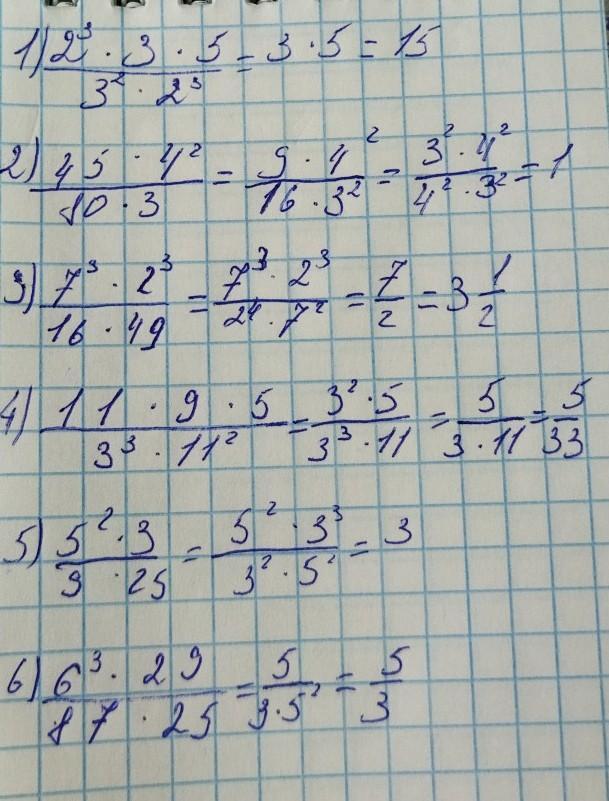 1) 2³ · 3 · 5 / 3² · 2³ = 3 · 5 = 15
2) 45 · 4² / 80 · 3 = 9 · 4² / 16 · 3² = 3² · 4² / 4² · 3² = 1
3) 7³ · 2³ / 16 · 49 = 7³ · 2³ / 2⁴ · 7² = 7/2 = 3 1/2
4) 11 · 9 · 5 / 3³ · 11² = 3² · 5 / 3³ · 11 = 5 / 3 · 11 = 5/33
5) 5² · 3 / 9 · 25 = 5² · 3³ / 3² · 5² = 3
6) 6³ · 29 / 87 · 25 = 5 / 3 · 5² = 5/3